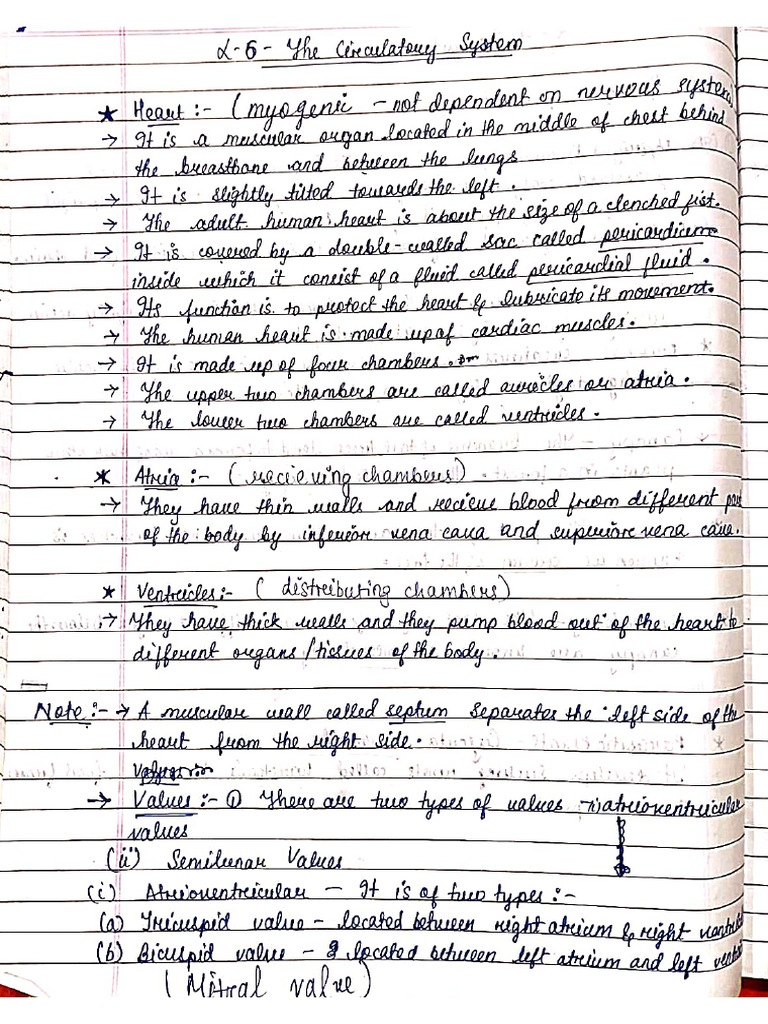 L-6 - The Circulatory System
* Heart :- (myogenic - not dependent on nervous system
→ It is a muscular organ located in the middle of chest behind
the breastbone and between the lungs
→ It is slightly tilted towards the left.
→ The adult human heart is about the size of a clenched fist.
→ It is covered by a double-walled sac called pericardium
inside which it consist of a fluid called pericardial fluid.
→ Its function is to protect the heart & lubricate its movement.
→ The human heart is made up of cardiac muscles.
→ It is made up of four chambers.
→ The upper two chambers are called auricles or atria.
→ The lower two chambers are called ventricles.
* Atria :- (recieving chambers)
→ They have thin walls and recieve blood from different
of the body by inferior vena cava and superior vena cava.
* Ventricles:- (distributing chambers)
→ They have thick walls and they pump blood out of the heart to
different organs/tissues of the body.
Note :- → A muscular wall called septum separates the left side of the
heart from the right side.
→ Values :- ① There are two types of values → i) atrioventricular
values
(ii) Semilunar Values
(i) Atrioventricular - It is of two types :-
(a) Tricuspid value - located between right atrium & right
(b) Bicuspid value - located between left atrium and left
(Mitral value)